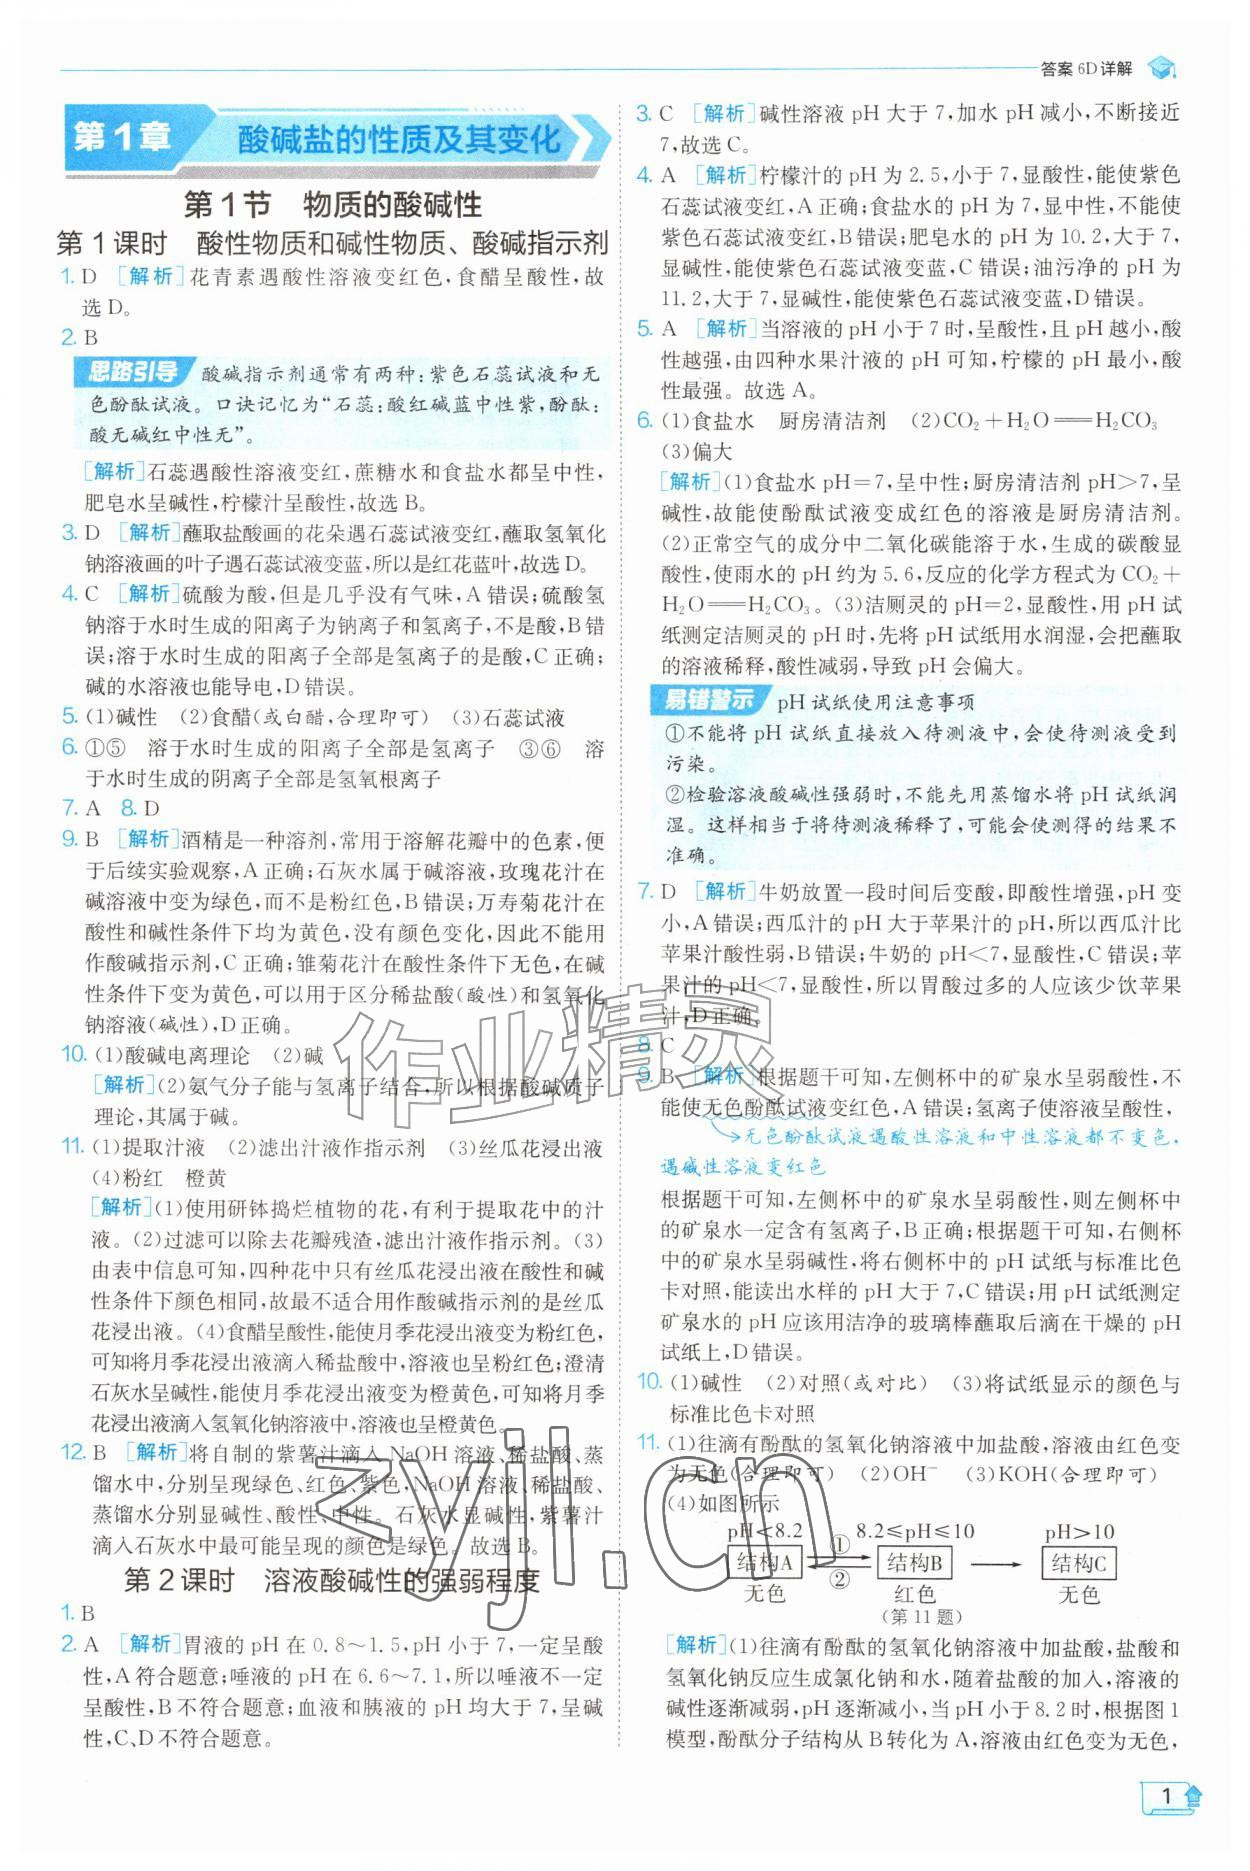 答案 6D详解
第1章 酸碱盐的性质及其变化
第1节 物质的酸碱性
第1课时 酸性物质和碱性物质、酸碱指示剂
1. D [解析]花青素遇酸性溶液变红色,食醋呈酸性,故
选D。
2. B
思路引导 酸碱指示剂通常有两种:紫色石蕊试液和无
色酚酞试液。口诀记忆为“石蕊:酸红碱蓝中性紫,酚酞:
酸无碱红中性无”。
[解析]石蕊遇酸性溶液变红,蔗糖水和食盐水都呈中性,
肥皂水呈碱性,柠檬汁呈酸性,故选B。
3. D [解析]蘸取盐酸画的花朵遇石蕊试液变红,蘸取氢氧化
钠溶液画的叶子遇石蕊试液变蓝,所以是红花蓝叶,故选D。
4. C [解析]硫酸为酸,但是几乎没有气味,A错误;硫酸氢
钠溶于水时生成的阳离子为钠离子和氢离子,不是酸,B错
误;溶于水时生成的阳离子全部是氢离子的是酸,C正确;
碱的水溶液也能导电,D错误。
5. (1)碱性 (2)食醋(或白醋,合理即可) (3)石蕊试液
6. ①⑤ 溶于水时生成的阳离子全部是氢离子 ③⑥ 溶
于水时生成的阴离子全部是氢氧根离子
7. A 8. D
9. B [解析]酒精是一种溶剂,常用于溶解花瓣中的色素,便
于后续实验观察,A正确;石灰水属于碱溶液,玫瑰花汁在
碱溶液中变为绿色,而不是粉红色,B错误;万寿菊花汁在
酸性和碱性条件下均为黄色,没有颜色变化,因此不能用
作酸碱指示剂,C正确;雏菊花汁在酸性条件下无色,在碱
性条件下变为黄色,可以用于区分稀盐酸(酸性)和氢氧化
钠溶液(碱性),D正确。
10. (1)酸碱电离理论 (2)碱
[解析](2)氨气分子能与氢离子结合,所以根据酸碱质子
理论,其属于碱。
11. (1)提取汁液 (2)滤出汁液作指示剂 (3)丝瓜花浸出液
(4)粉红 橙黄
[解析](1)使用研钵捣烂植物的花,有利于提取花中的汁
液。(2)过滤可以除去花瓣残渣,滤出汁液作指示剂。(3)
由表中信息可知,四种花中只有丝瓜花浸出液在酸性和碱
性条件下颜色相同,故最不适合用作酸碱指示剂的是丝瓜
花浸出液。(4)食醋呈酸性,能使月季花浸出液变为粉红色,
可知将月季花浸出液滴入稀盐酸中,溶液也呈粉红色;澄清
石灰水呈碱性,能使月季花浸出液变为橙黄色,可知将月季
花浸出液滴入氢氧化钠溶液中,溶液也呈橙黄色。
12. B [解析]将自制的紫薯汁滴入NaOH溶液、稀盐酸、蒸
馏水中,分别呈现绿色、红色、紫色,NaOH溶液、稀盐酸、
蒸馏水分别显碱性、酸性、中性。石灰水显碱性,紫薯汁
滴入石灰水中最可能呈现的颜色是绿色。故选B。
第2课时 溶液酸碱性的强弱程度
1. B
2. A [解析]胃液的pH在0.8~1.5,pH小于7,一定呈酸
性,A符合题意;唾液的pH在6.6~7.1,所以唾液不一定
呈酸性,B不符合题意;血液和胰液的pH均大于7,呈碱
性,C、D不符合题意。
3. C [解析]碱性溶液pH大于7,加水pH减小,不断接近
7,故选C。
4. A [解析]柠檬汁的pH为2.5,小于7,显酸性,能使紫色
石蕊试液变红,A正确;食盐水的pH为7,显中性,不能使
紫色石蕊试液变红,B错误;肥皂水的pH为10.2,大于7,
显碱性,能使紫色石蕊试液变蓝,C错误;油污净的pH为
11.2,大于7,显碱性,能使紫色石蕊试液变蓝,D错误。
5. A [解析]当溶液的pH小于7时,呈酸性,且pH越小,酸
性越强,由四种水果汁液的pH可知,柠檬的pH最小,酸
性最强。故选A。
6. (1)食盐水 厨房清洁剂 (2)CO₂+H₂O══H₂CO₃
(3)偏大
[解析](1)食盐水pH=7,呈中性;厨房清洁剂pH>7,呈
碱性,故能使酚酞试液变成红色的溶液是厨房清洁剂。
(2)正常空气的成分中二氧化碳能溶于水,生成的碳酸显
酸性,使雨水的pH约为5.6,反应的化学方程式为CO₂+
H₂O══H₂CO₃。(3)洁厕灵的pH=2,显酸性,用pH试
纸测定洁厕灵的pH时,先将pH试纸用水润湿,会把蘸取
的溶液稀释,酸性减弱,导致pH会偏大。
易错警示 pH试纸使用注意事项
①不能将pH试纸直接放入待测液中,会使待测液受到
污染。
②检验溶液酸碱性强弱时,不能先用蒸馏水将pH试纸润
湿。这样相当于将待测液稀释了,可能会使测得的结果不
准确。
7. D [解析]牛奶放置一段时间后变酸,即酸性增强,pH变
小,A错误;西瓜汁的pH大于苹果汁的pH,所以西瓜汁比
苹果汁酸性弱,B错误;牛奶的pH<7,显酸性,C错误;苹
果汁的pH<7,显酸性,所以胃酸过多的人应该少饮苹果
汁,D正确。
8. C
9. B [解析]根据题干可知,左侧杯中的矿泉水呈弱酸性,不
能使无色酚酞试液变红色,A错误;氢离子使溶液呈酸性,
→无色酚酞试液遇酸性溶液和中性溶液都不变色,
遇碱性溶液变红色
根据题干可知,左侧杯中的矿泉水呈弱酸性,则左侧杯中
的矿泉水一定含有氢离子,B正确;根据题干可知,右侧杯
中的矿泉水呈弱碱性,将右侧杯中的pH试纸与标准比色
卡对照,能读出水样的pH大于7,C错误;用pH试纸测定
矿泉水的pH应该用洁净的玻璃棒蘸取后滴在干燥的pH
试纸上,D错误。
10. (1)碱性 (2)对照(或对比) (3)将试纸显示的颜色与
标准比色卡对照
11. (1)往滴有酚酞的氢氧化钠溶液中加盐酸,溶液由红色变
为无色(合理即可) (2)OH⁻ (3)KOH(合理即可)
(4)如图所示
pH<8.2 8.2≤pH≤10 pH>10
结构A ① ② 结构B → 结构C
无色 红色 无色
(第11题)
[解析](1)往滴有酚酞的氢氧化钠溶液中加盐酸,盐酸和
氢氧化钠反应生成氯化钠和水,随着盐酸的加入,溶液的
碱性逐渐减弱,pH逐渐减小,当pH小于8.2时,根据图1
模型,酚酞分子结构从B转化为A,溶液由红色变为无色,
1
作业精灵
zyjl.cn